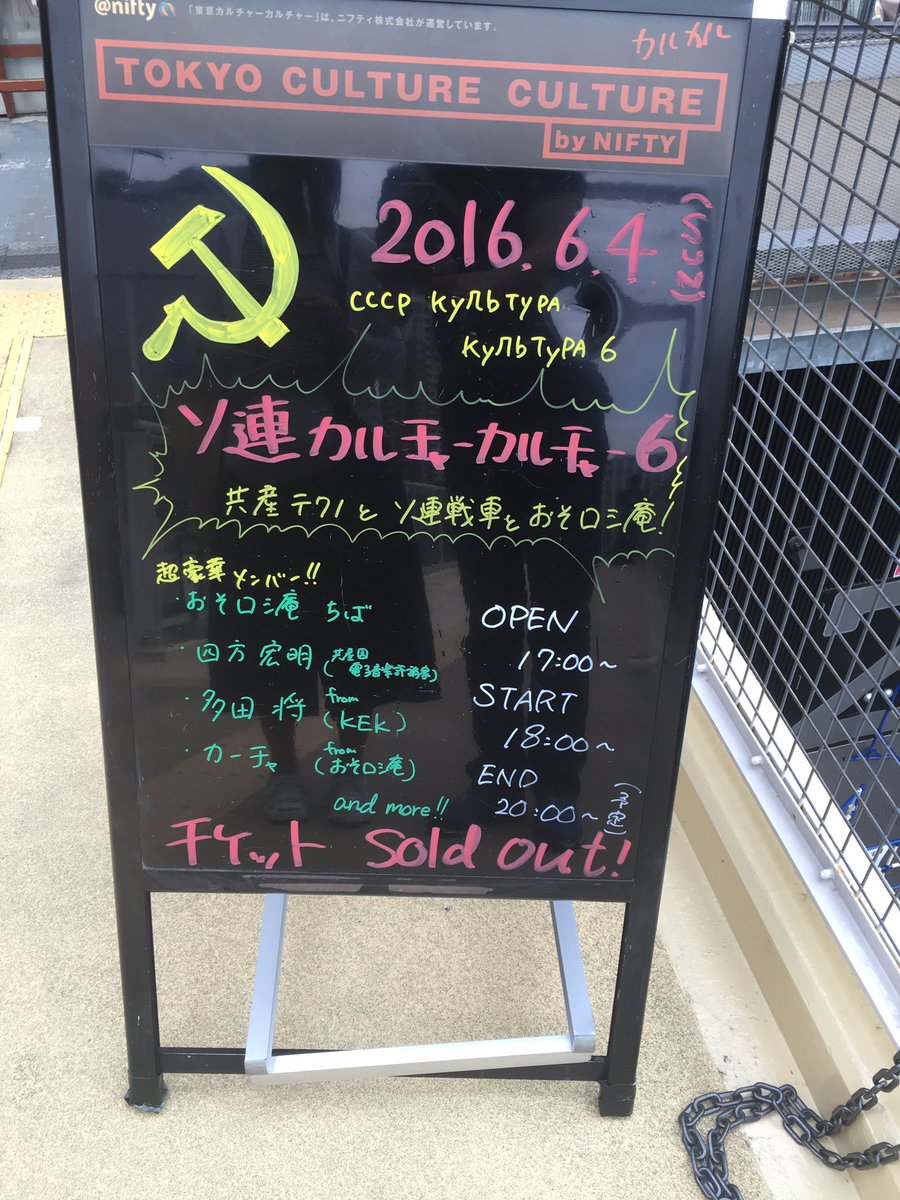 @nifty 「東京カルチャーカルチャー」は、ニフティ株式会社が運営しています。
カルカル
TOKYO CULTURE CULTURE
by NIFTY
2016.6.4.
СССР КУЛЬТУРА
КУЛЬТУРА 6
ソ連カルチャーカルチャー6
共産テクノとソ連戦車とおそロシ庵!
超豪華メンバー!!
・おそロシ庵 ちば
・四方宏明(共産国電子音楽評論家)
・多田将 (from KEK)
・カーチャ (from おそロシ庵)
and more!!
OPEN
17:00~
START
18:00~
END
20:00~(予定)
チケット Sold out!